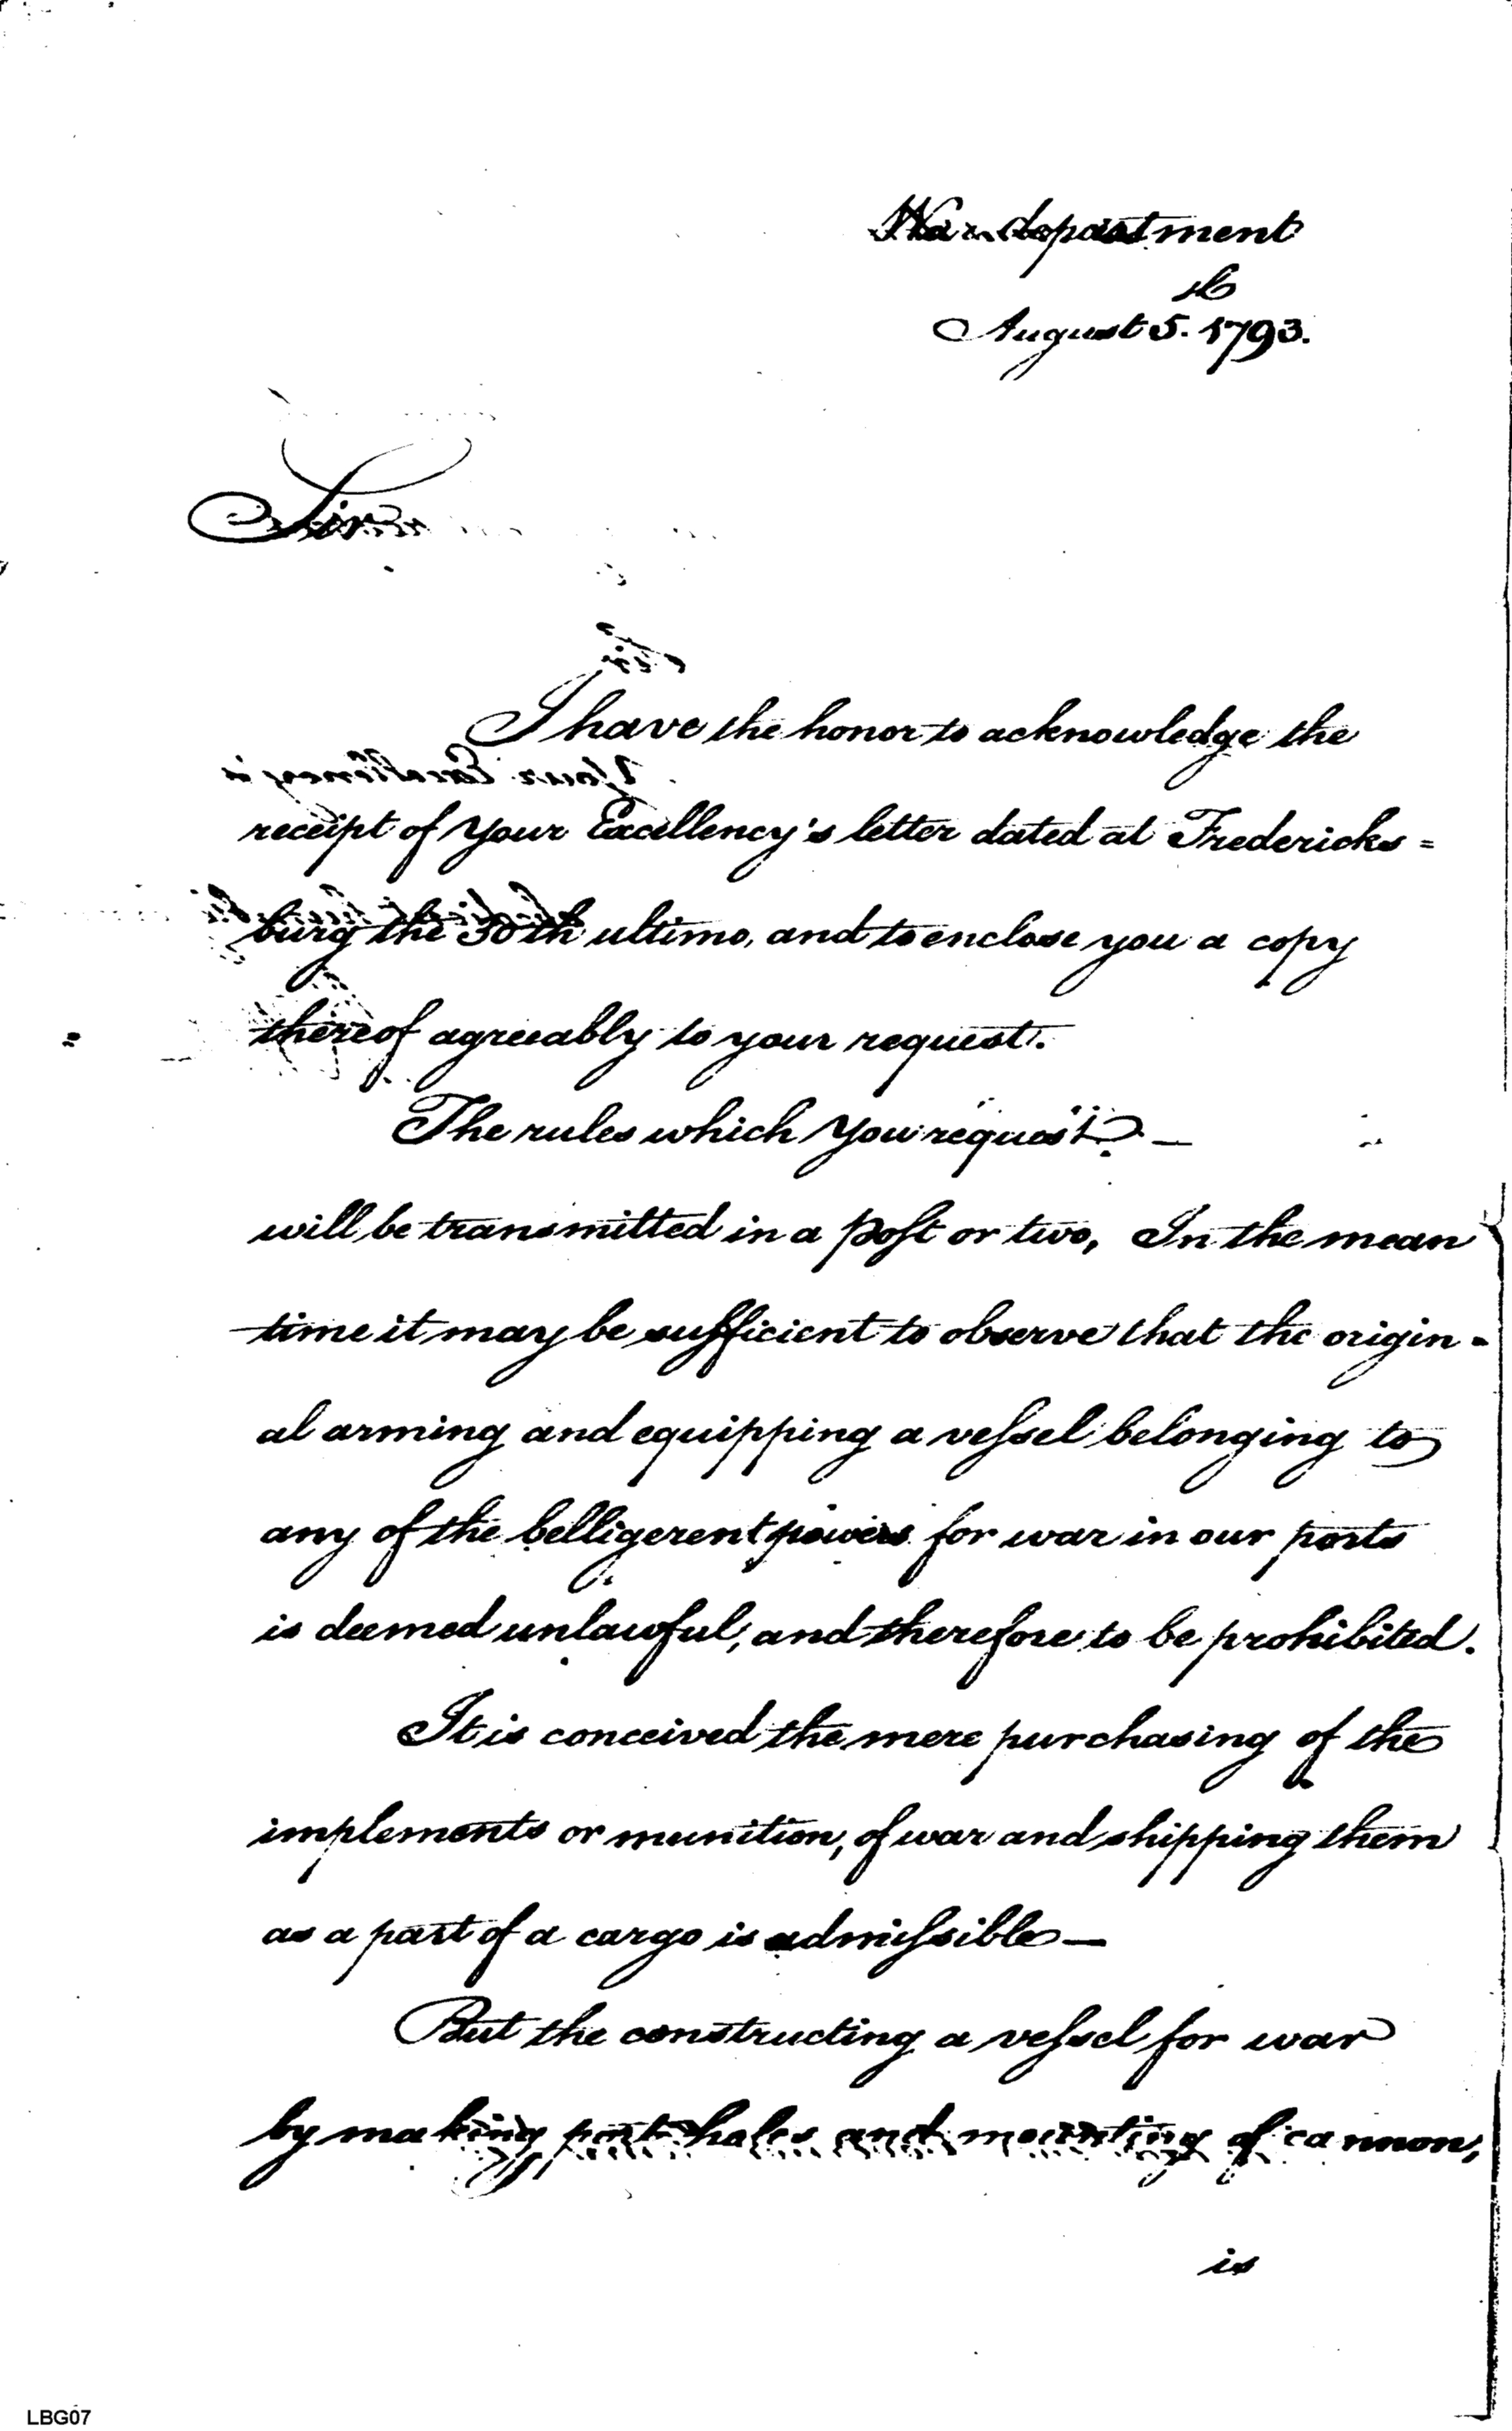 War department
th
August 5. 1793.
Sir
I have the honor to acknowledge the
receipt of Your Excellency's letter dated at Fredericks=
burg the 30th ultimo, and to enclose you a copy
thereof agreeably to your request.
The rules which You request —
will be transmitted in a poſt or two, In the mean
time it may be sufficient to observe that the origin=
al arming and equipping a veſsel belonging to
any of the belligerent powers for war in our ports
is deemed unlawful, and therefore to be prohibited.
It is conceived the mere purchasing of the
implements or munition, of war and shipping them
as a part of a cargo is admiſsible —
But the constructing a veſsel for war
by making port holes and mounting of cannon,
is
LBG07